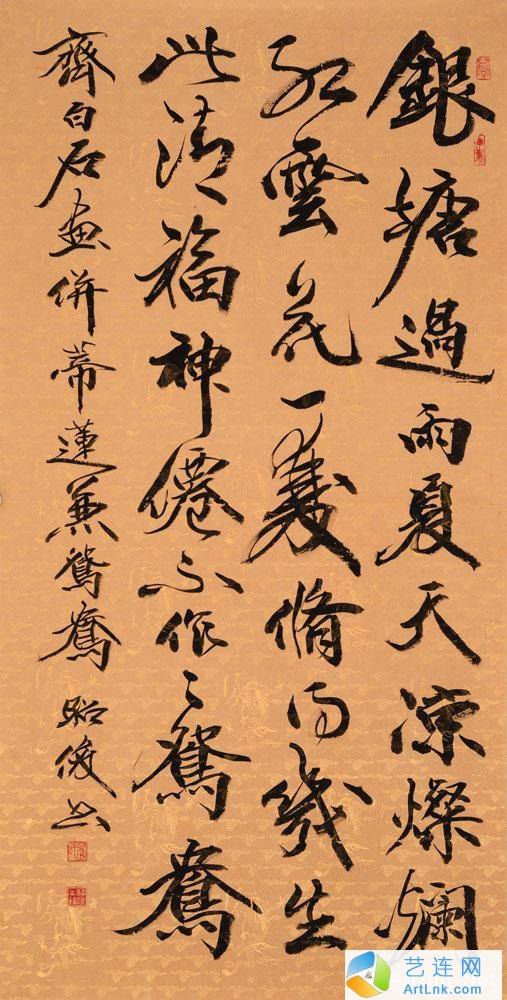 銀塘過雨夏天涼燦爛
紅雲花一雙脩得幾生
此清福神僊不作〻鴛鴦
齊白石畫併蒂蓮兼鴛鴦 昭俊書
艺连网
ArtLnk.com